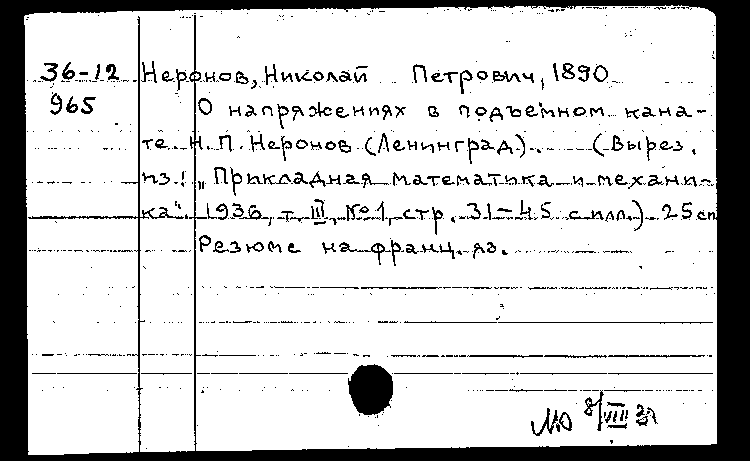 36-12 Неронов, Николай Петрович, 1890
965 О напряжениях в подъемном кана-
те. Н. П. Неронов (Ленинград). (Вырез.
из: „Прикладная математика и механи-
ка". 1936, т. III, №1, стр. 31-45 с илл.) 25 см
Резюме на франц. яз.
8/VIII